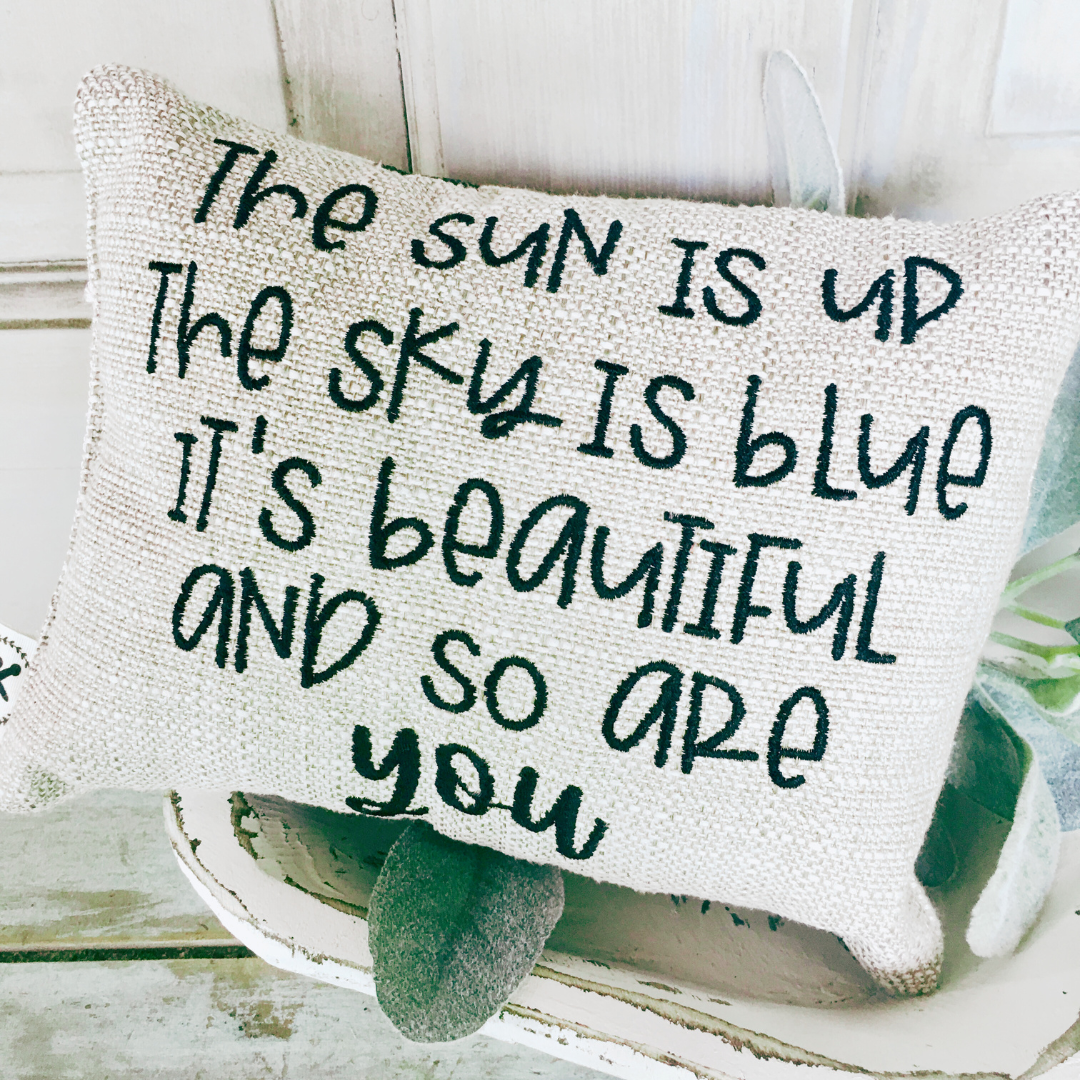 The SUN IS UP
The SKY IS bLUe
IT'S beaUTIFUL
aND SO aRe
you